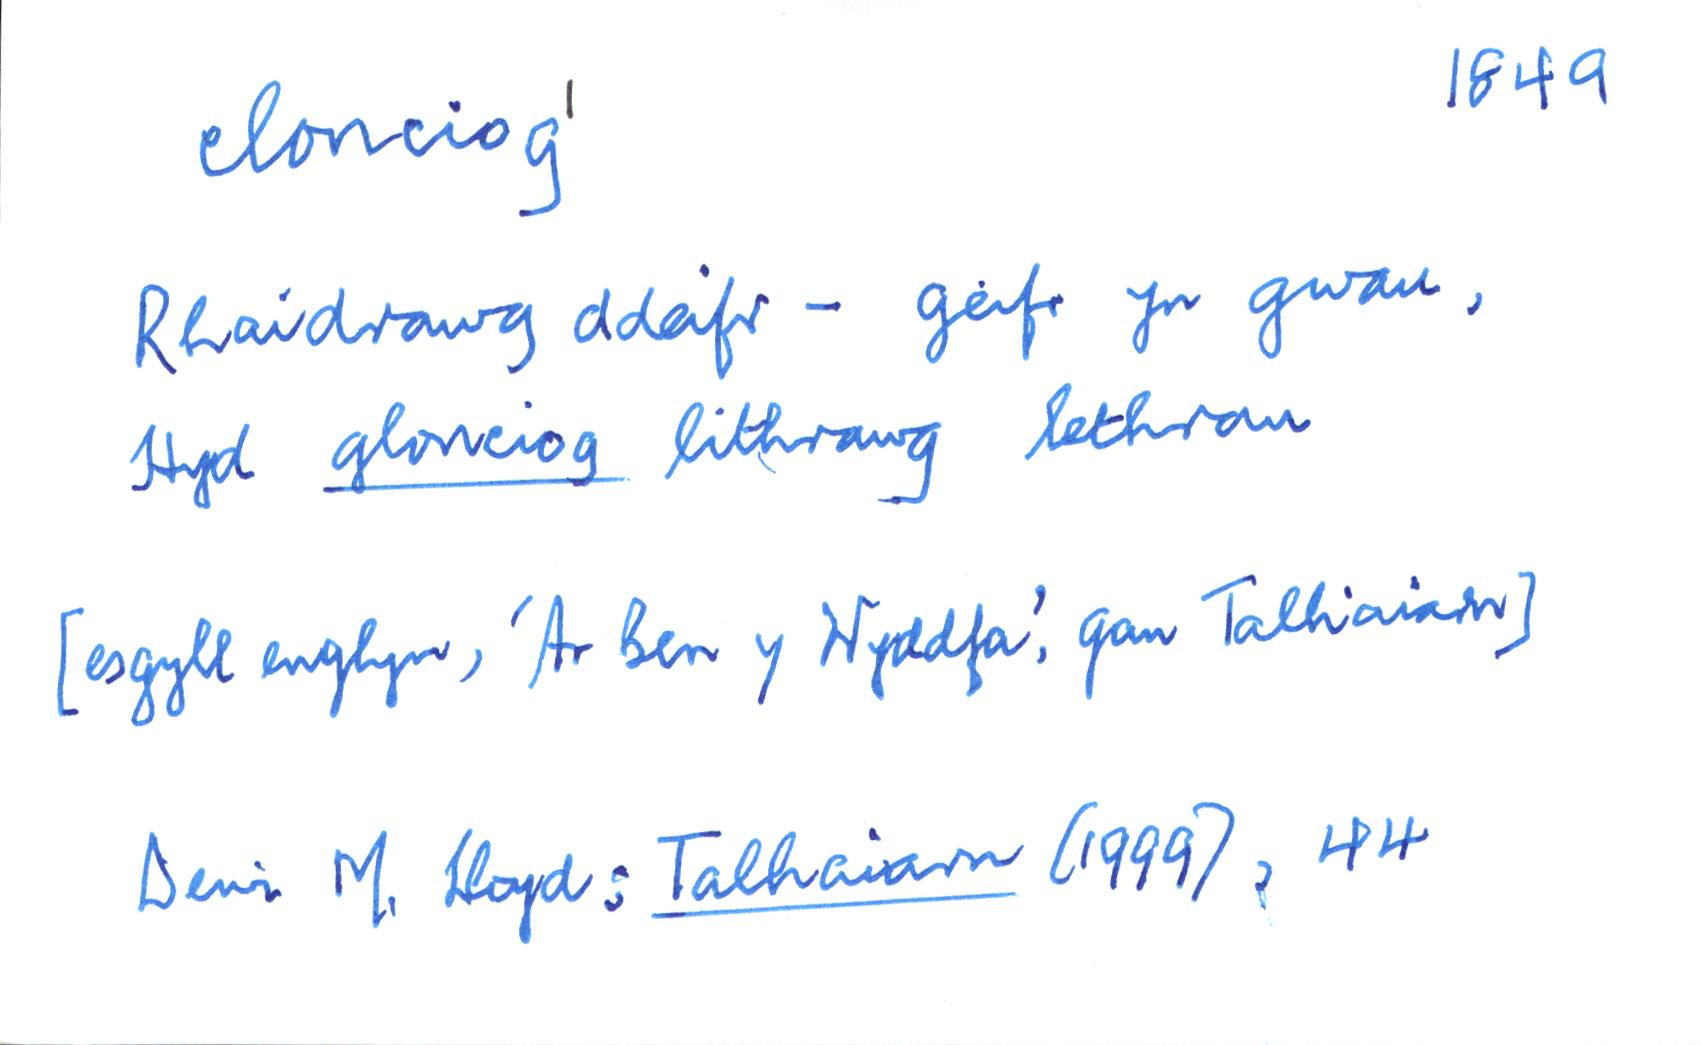 clonciog¹ 1849
Rhaidrawg ddeifr – geifr yn gwau,
Hyd glonciog lithrawg lethrau
[esgyll englyn, 'Ar Ben y Wyddfa', gan Talhaiarn]
Dewi M. Lloyd: Talhaiarn (1999), 44